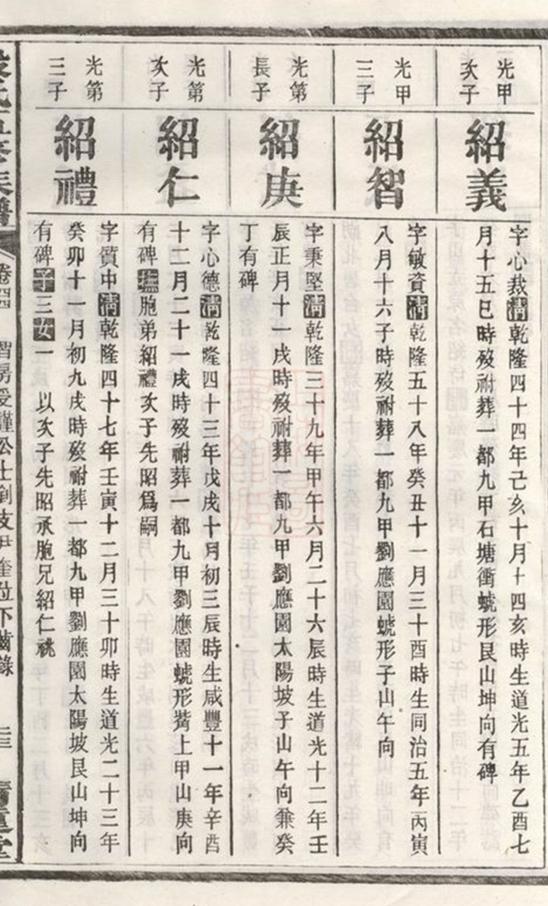 光甲
次子
紹義
字心裁清乾隆四十四年己亥十月十四亥時生道光五年乙酉七
月十五巳時歿祔葬一都九甲石塘衝虓形艮山坤向有碑
光甲
三子
紹智
字敏資清乾隆五十八年癸丑十一月三十酉時生同治五年丙寅
八月十六子時歿祔葬一都九甲劉應園虓形子山午向
光第
長子
紹庚
字秉堅清乾隆三十九年甲午六月二十六辰時生道光十二年壬
辰正月十一戌時歿祔葬一都九甲劉應園太陽坡子山午向兼癸
丁有碑
光第
次子
紹仁
字心德清乾隆四十三年戊戌十月初三辰時生咸豐十一年辛酉
十二月二十一戌時歿祔葬一都九甲劉應園虓形嘴上甲山庚向
有碑撫胞弟紹禮次子先昭爲嗣
光第
三子
紹禮
字質中清乾隆四十七年壬寅十二月三十卯時生道光二十三年
癸卯十一月初九戌時歿祔葬一都九甲劉應園太陽坡艮山坤向
有碑子三女一 以次子先昭承胞兄紹仁祧
氏五修族譜
卷四 下齒錄